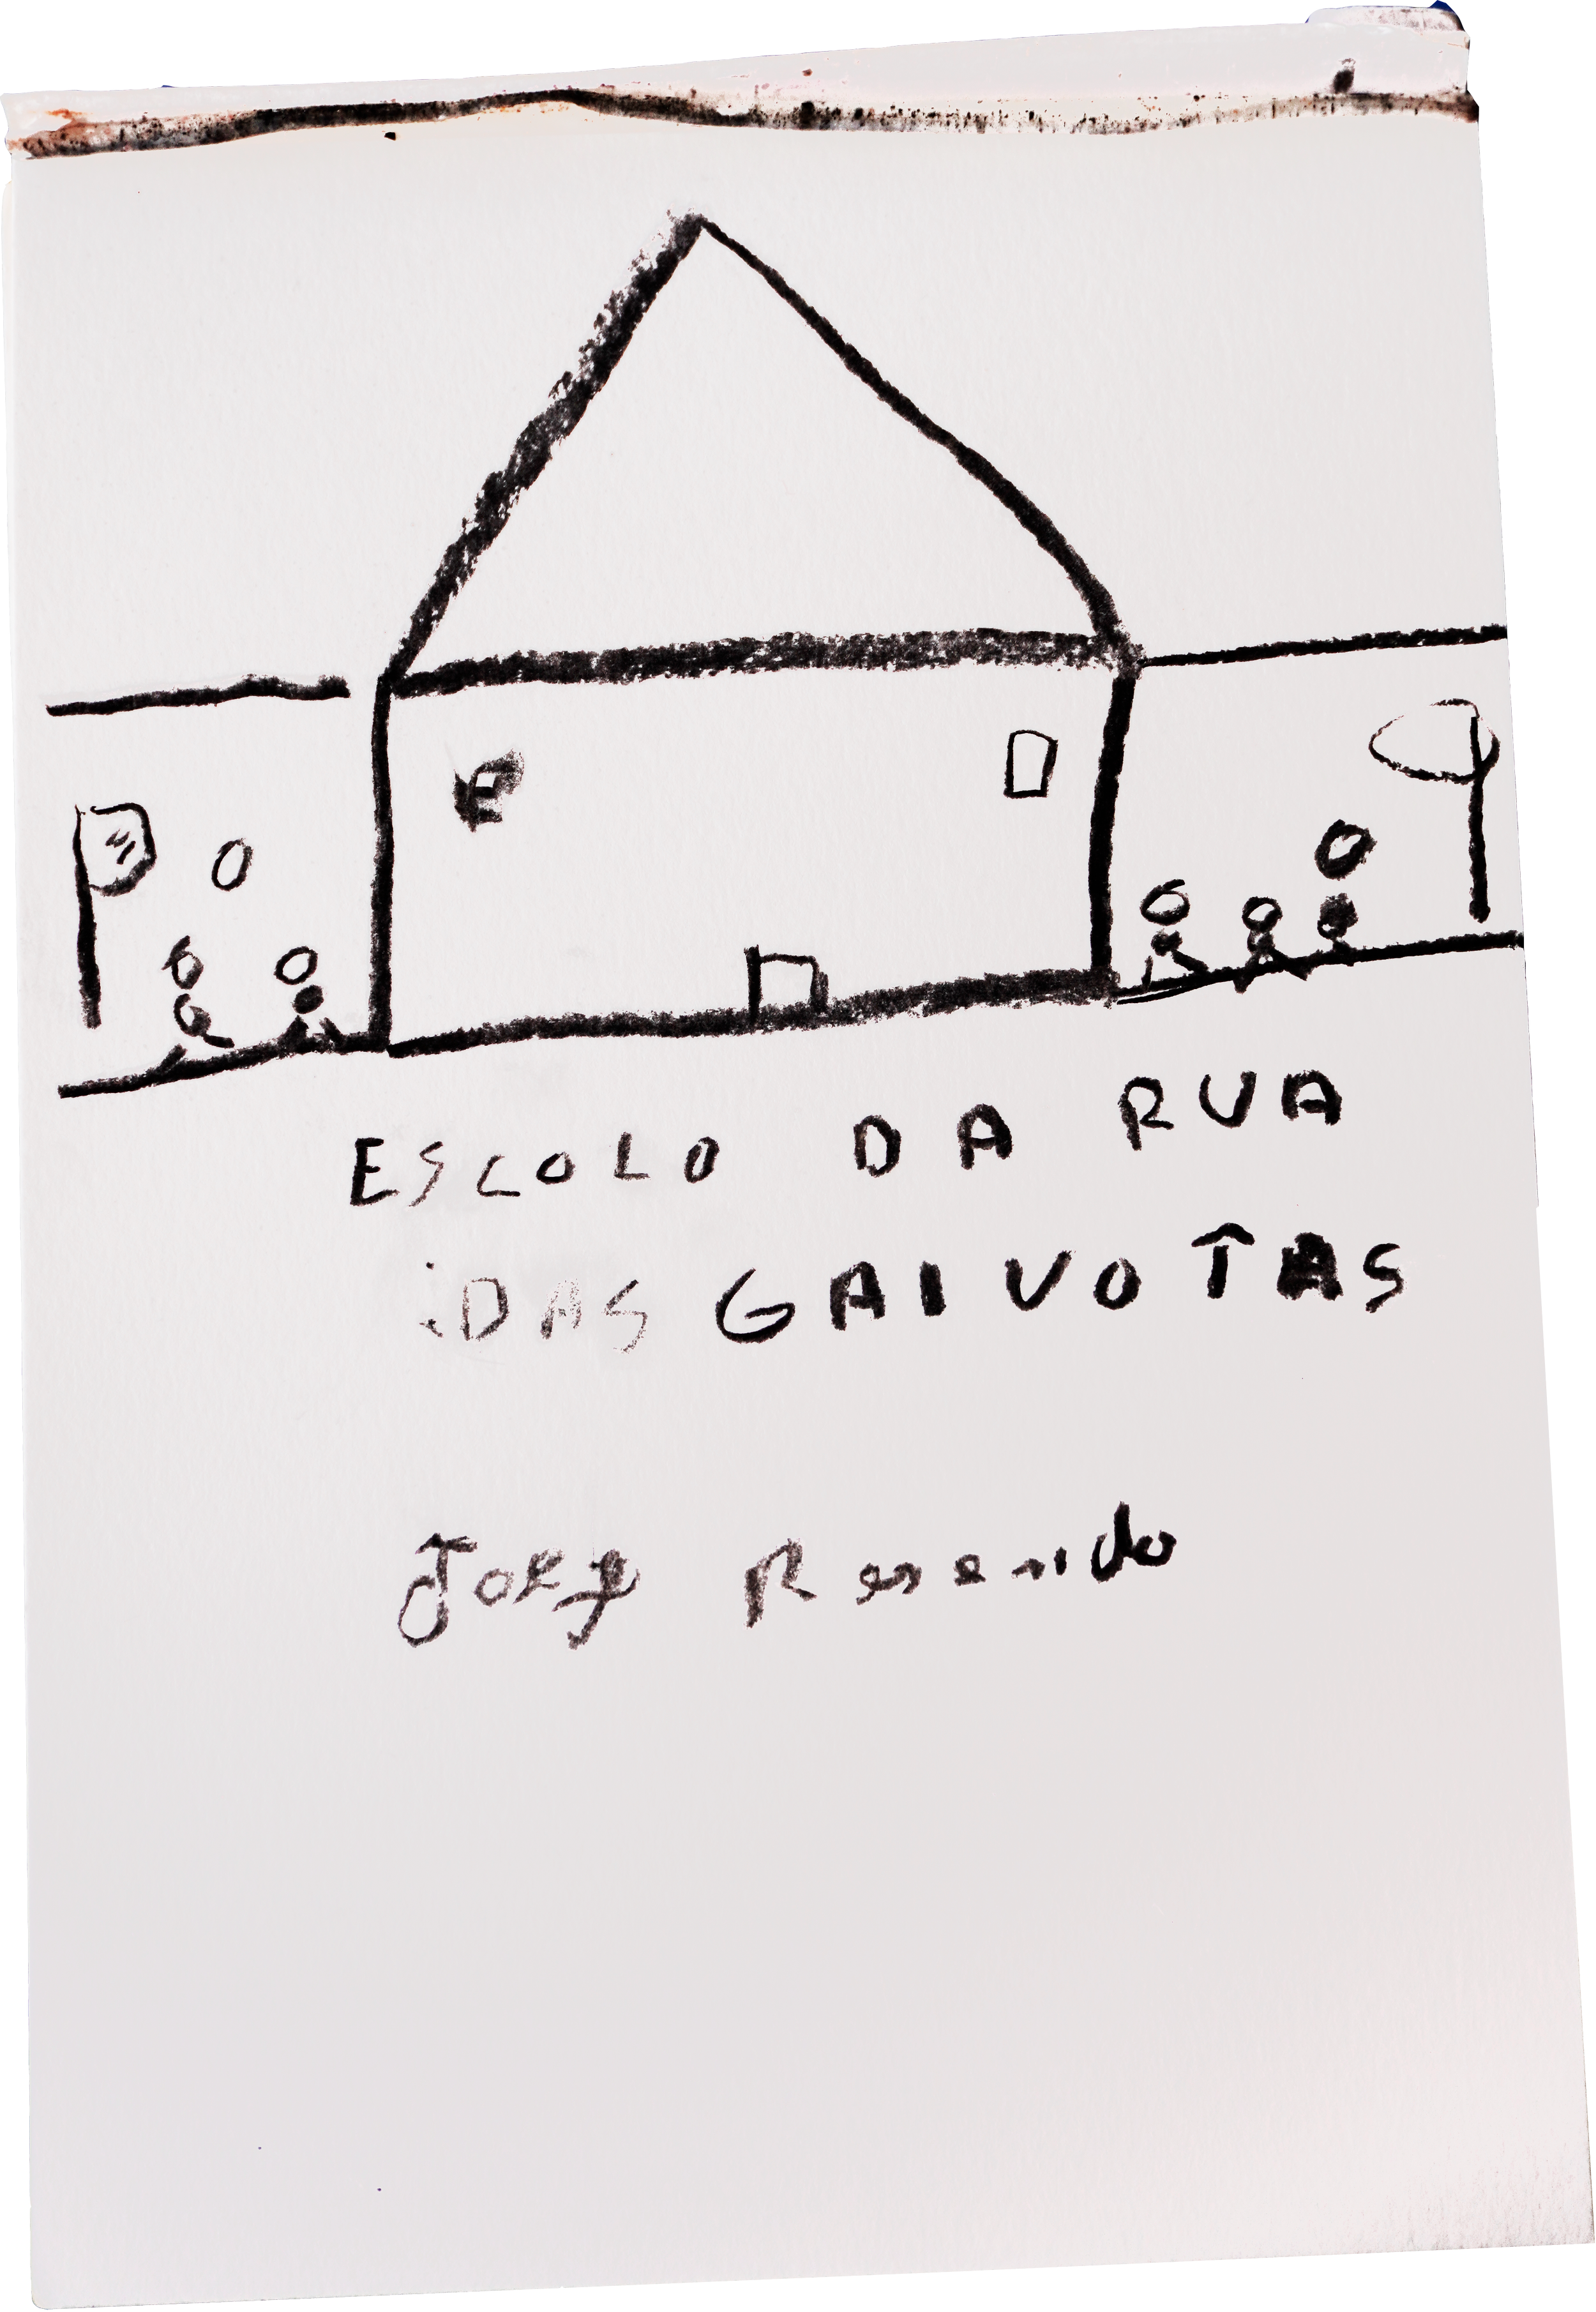 ESCOLO DA RUA
DAS GAIVOTAS
Resende